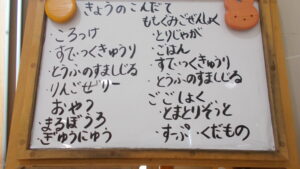 きょうのこんだて
ころっけ
・すてぃっくきゅうり
・とうふのすましじる
・りんごぜりー
おやつ
・まるぼうろ
・ぎゅうにゅう
ももぐみごぜんしょく
・とりじゃが
・ごはん
・すてぃっくきゅうり
・とうふのすましじる
ごごしょく
・とまとりぞっと
・すーぷ・くだもの